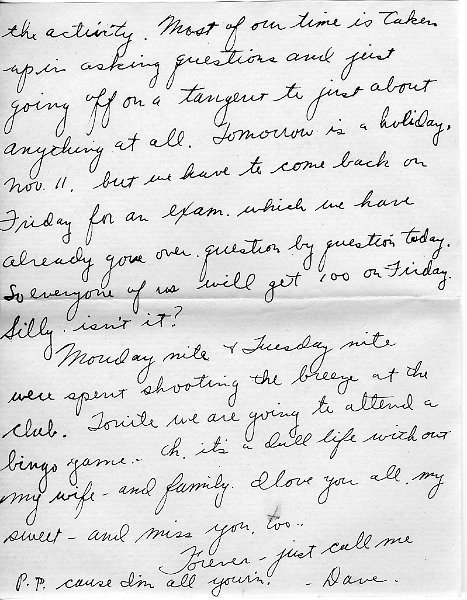 the activity. Most of our time is taken
up in asking questions and just
going off on a tangent to just about
anything at all. Tomorrow is a holiday,
Nov. 11. but we have to come back on
Friday for an exam. which we have
already gone over question by question today.
So everyone of us will get 100 on Friday.
Silly. isn't it?
Monday nite & Tuesday nite
were spent shooting the breeze at the
club. Tonite we are going to attend a
bingo game.- Oh, it's a dull life without
my wife - and family. I love you all, my
sweet - and miss you, too..
Forever - just call me
P.P. cause I'm all yourn. - Dave.